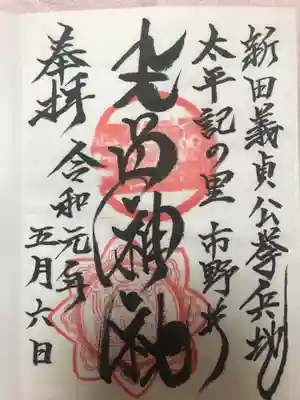 新田義貞公挙兵地
太平記の里 市野井
生品神社
奉拝 令和元年
五月六日